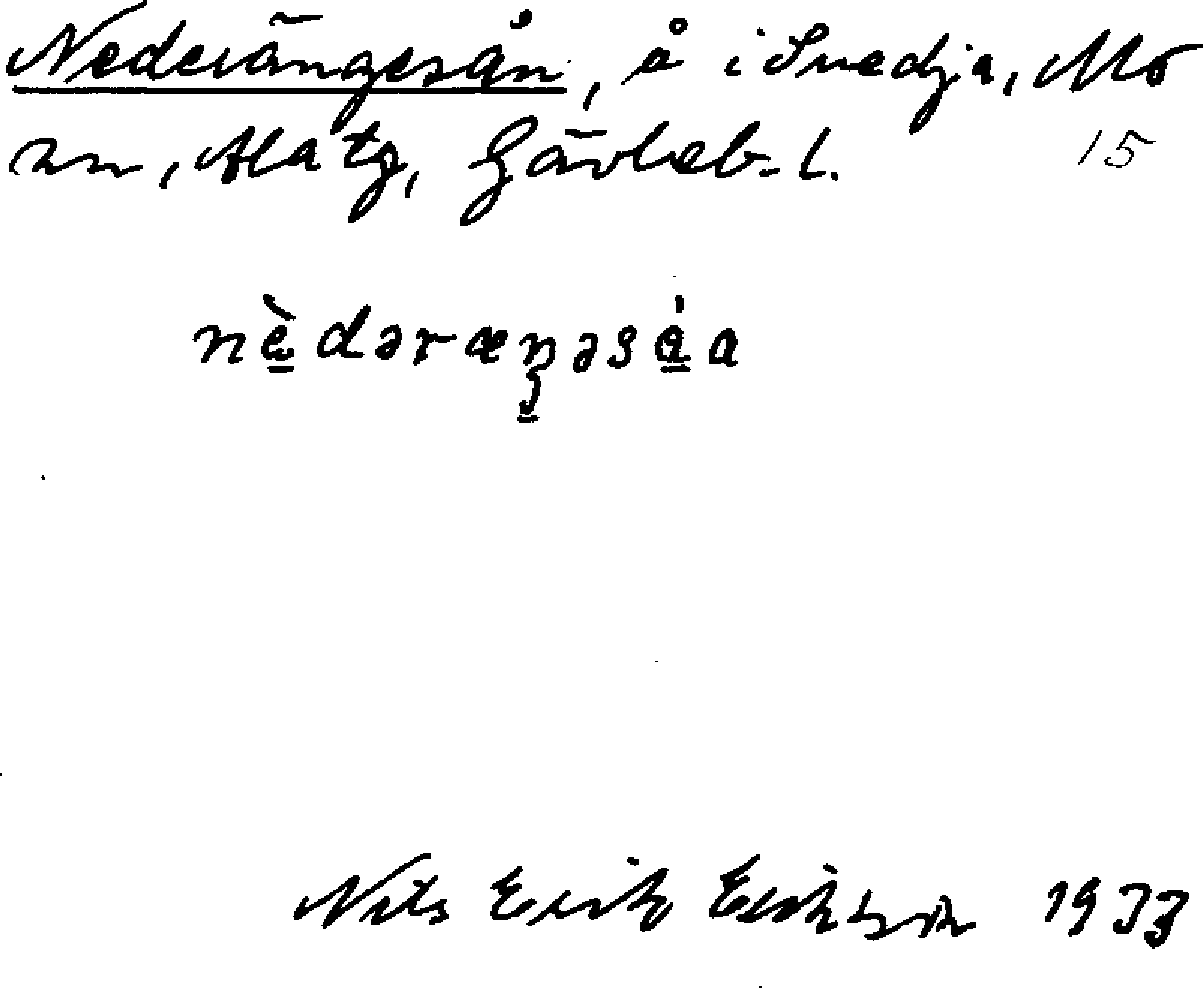 Nederängesån, å i Svedja, Mo
sn, Ala tg, Gävleb. l. 15
nèdəræŋəsáa
Nils Erik Eriksson 1933